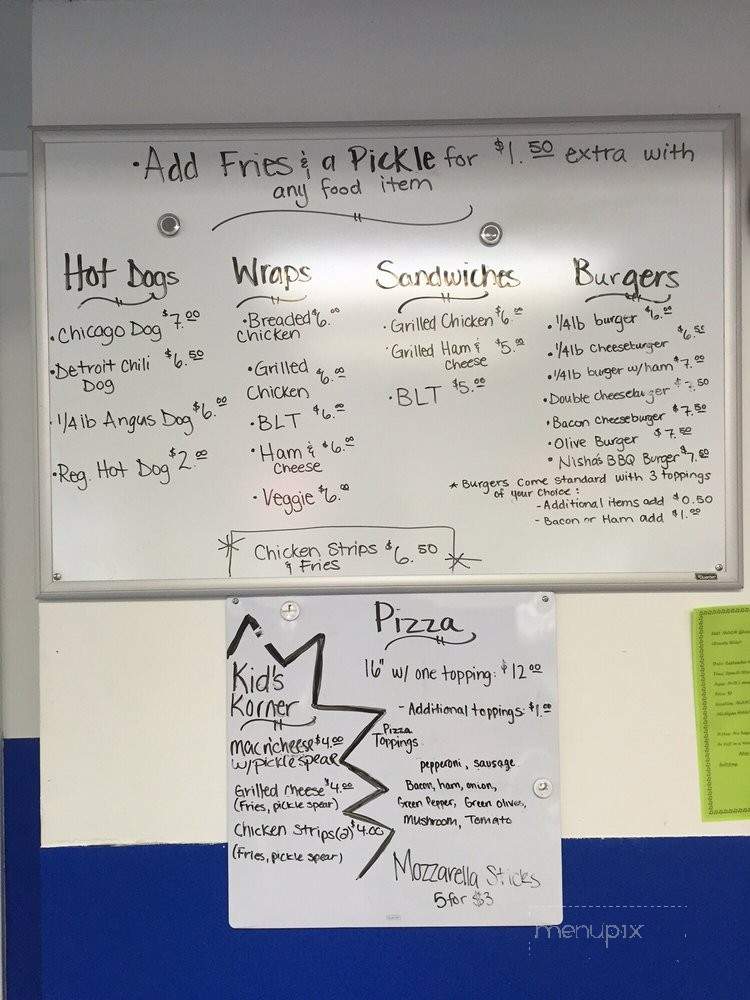 ·Add Fries & a Pickle for $1.50 extra with
any food item
Hot Dogs
·Chicago Dog $7.00
·Detroit Chili $6.50
Dog
·1/4lb Angus Dog $6.00
·Reg. Hot Dog $2.00
Wraps
·Breaded $6.00
Chicken
·Grilled
Chicken $6.00
·BLT $6.00
·Ham & $6.00
Cheese
·Veggie $6.00
Sandwiches
·Grilled Chicken $6.00
·Grilled Ham & $5.00
Cheese
·BLT $5.00
Burgers
·1/4lb burger $6.00
·1/4lb Cheeseburger $6.50
·1/4lb burger w/ham $7.00
·Double cheeseburger
·Bacon cheeseburger $7.50
·Olive Burger $7.50
·Nisha's BBQ Burger $7.50
* Burgers come standard with 3 toppings
of your choice:
- Additional items add $0.50
- Bacon or Ham add $1.00
* Chicken Strips $6.50 *
& Fries
Kid's
Korner
mac n cheese $4.00
w/pickle spear
Grilled cheese $4.00
(Fries, pickle spear)
Chicken Strips (2) $4.00
(Fries, pickle spear)
Pizza
16" w/ one topping: $12.00
- Additional toppings: $1.00
Pizza
Toppings
pepperoni, sausage
Bacon, ham, onion,
Green Pepper, Green olives,
Mushroom, Tomato
Mozzarella Sticks
5 for $3
menupix